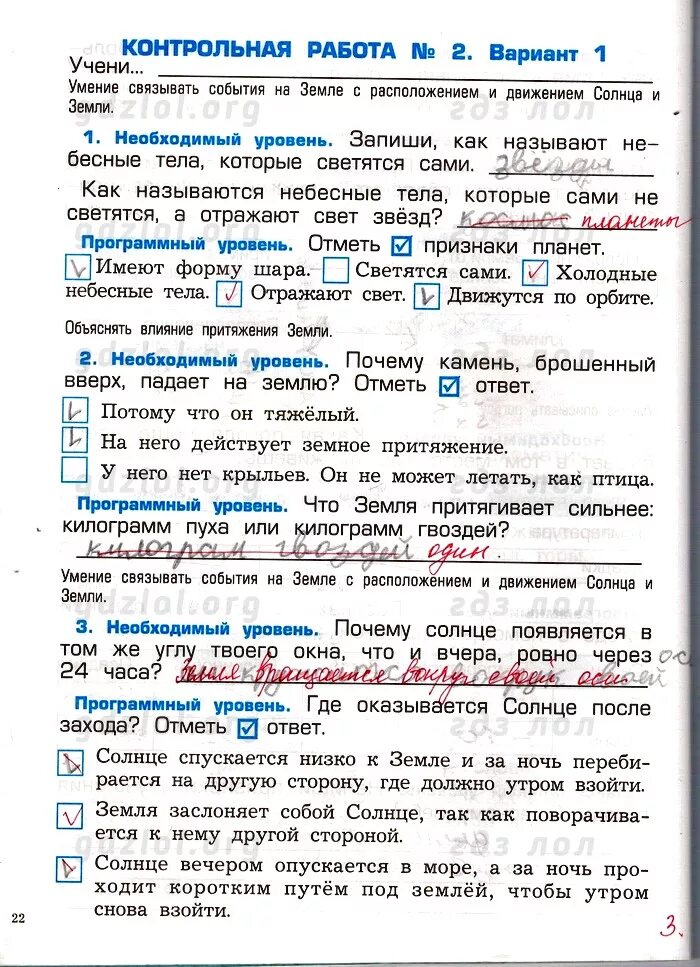 КОНТРОЛЬНАЯ РАБОТА № 2. Вариант 1
Учени...
Умение связывать события на Земле с расположением и движением Солнца и
Земли.
1. Необходимый уровень. Запиши, как называют не-
бесные тела, которые светятся сами. звёзды
Как называются небесные тела, которые сами не
светятся, а отражают свет звёзд? космос планеты
Программный уровень. Отметь признаки планет.
Имеют форму шара. Светятся сами. Холодные
небесные тела. Отражают свет. Движутся по орбите.
Объяснять влияние притяжения Земли.
2. Необходимый уровень. Почему камень, брошенный
вверх, падает на землю? Отметь ответ.
Потому что он тяжёлый.
На него действует земное притяжение.
У него нет крыльев. Он не может летать, как птица.
Программный уровень. Что Земля притягивает сильнее:
килограмм пуха или килограмм гвоздей?
килограм гвоздей один.
Умение связывать события на Земле с расположением и движением Солнца и
Земли.
3. Необходимый уровень. Почему солнце появляется в
том же углу твоего окна, что и вчера, ровно через
24 часа? Земля вращается вокруг своей оси
Программный уровень. Где оказывается Солнце после
захода? Отметь ответ.
Солнце спускается низко к Земле и за ночь переби-
рается на другую сторону, где должно утром взойти.
Земля заслоняет собой Солнце, так как поворачива-
ется к нему другой стороной.
Солнце вечером опускается в море, а за ночь про-
ходит коротким путём под землёй, чтобы утром
снова взойти.
22
3.
gdzlol.org
гдз лол